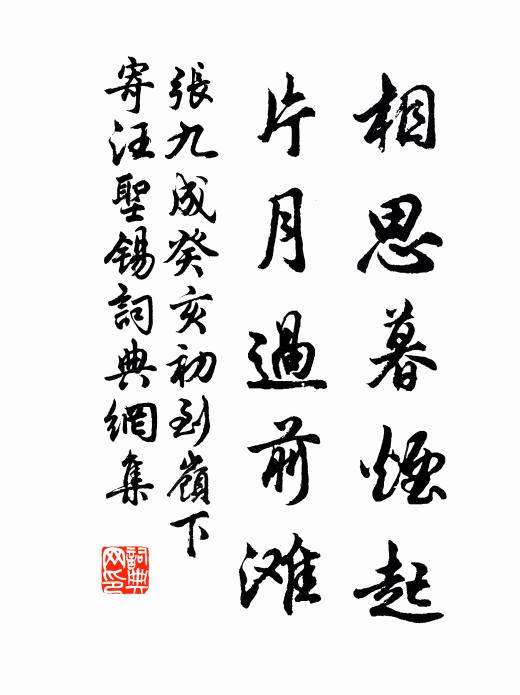 相思暮煙起
片月過前滩
張九成癸亥初到嶺下
寄汪聖錫詞典網集
詞典网印